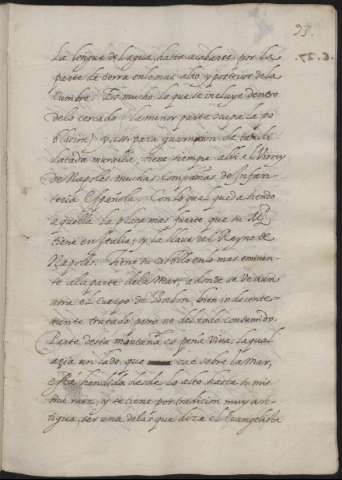 33.
C. 27.
La lengua del agua, hasta acabarse por la
parte de tierra en lo mas alto, y postrero de la
Cumbre. Es mucho lo que se incluye dentro
de lo cercado: la menor parte ocupa la po
blacion; y assi para guarnicion de tan di-
latada muralla, tiene siempre alli el Virrey
de Napoles muchas Companias de Infan-
teria Española. Con lo qual queda siendo
aquella la Plaza mas fuerte que su Mag.d
tiene en Italia, y la llave del Reyno de
Napoles. Tiene su Castillo en lo mas eminen-
te a la parte de la Mar, a donde se ve aun
oy el Cuerpo de Borbon, bien indecente-
mente tratado, pero no del todo consumido.
Parte desta montaña es peña viva, la qual
hazia un lado que cae sobre la Mar,
está hendida desde lo alto hasta su mis-
ma raiz, y se tiene por tradicion muy an-
tigua, ser una de las que dize el Evangelista